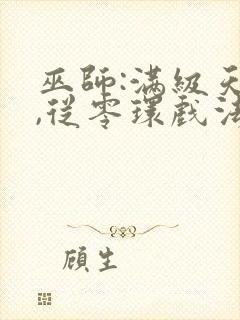 巫師:滿級天
,從零環戲法
顧生